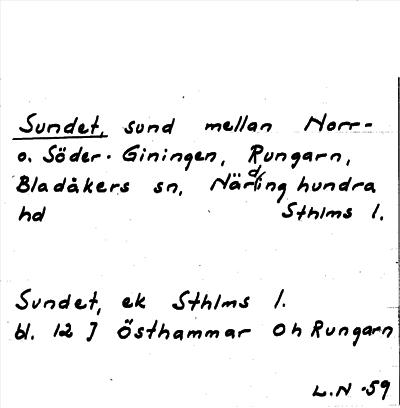 Sundet, sund mellan Norr-
o. Söder-Giningen, Rungarn,
Bladåkers sn, Närdinghundra
hd Sthlms l.
Sundet, ek Sthlms l.
bl. 12 J Östhammar Oh Rungarn
L.N -59